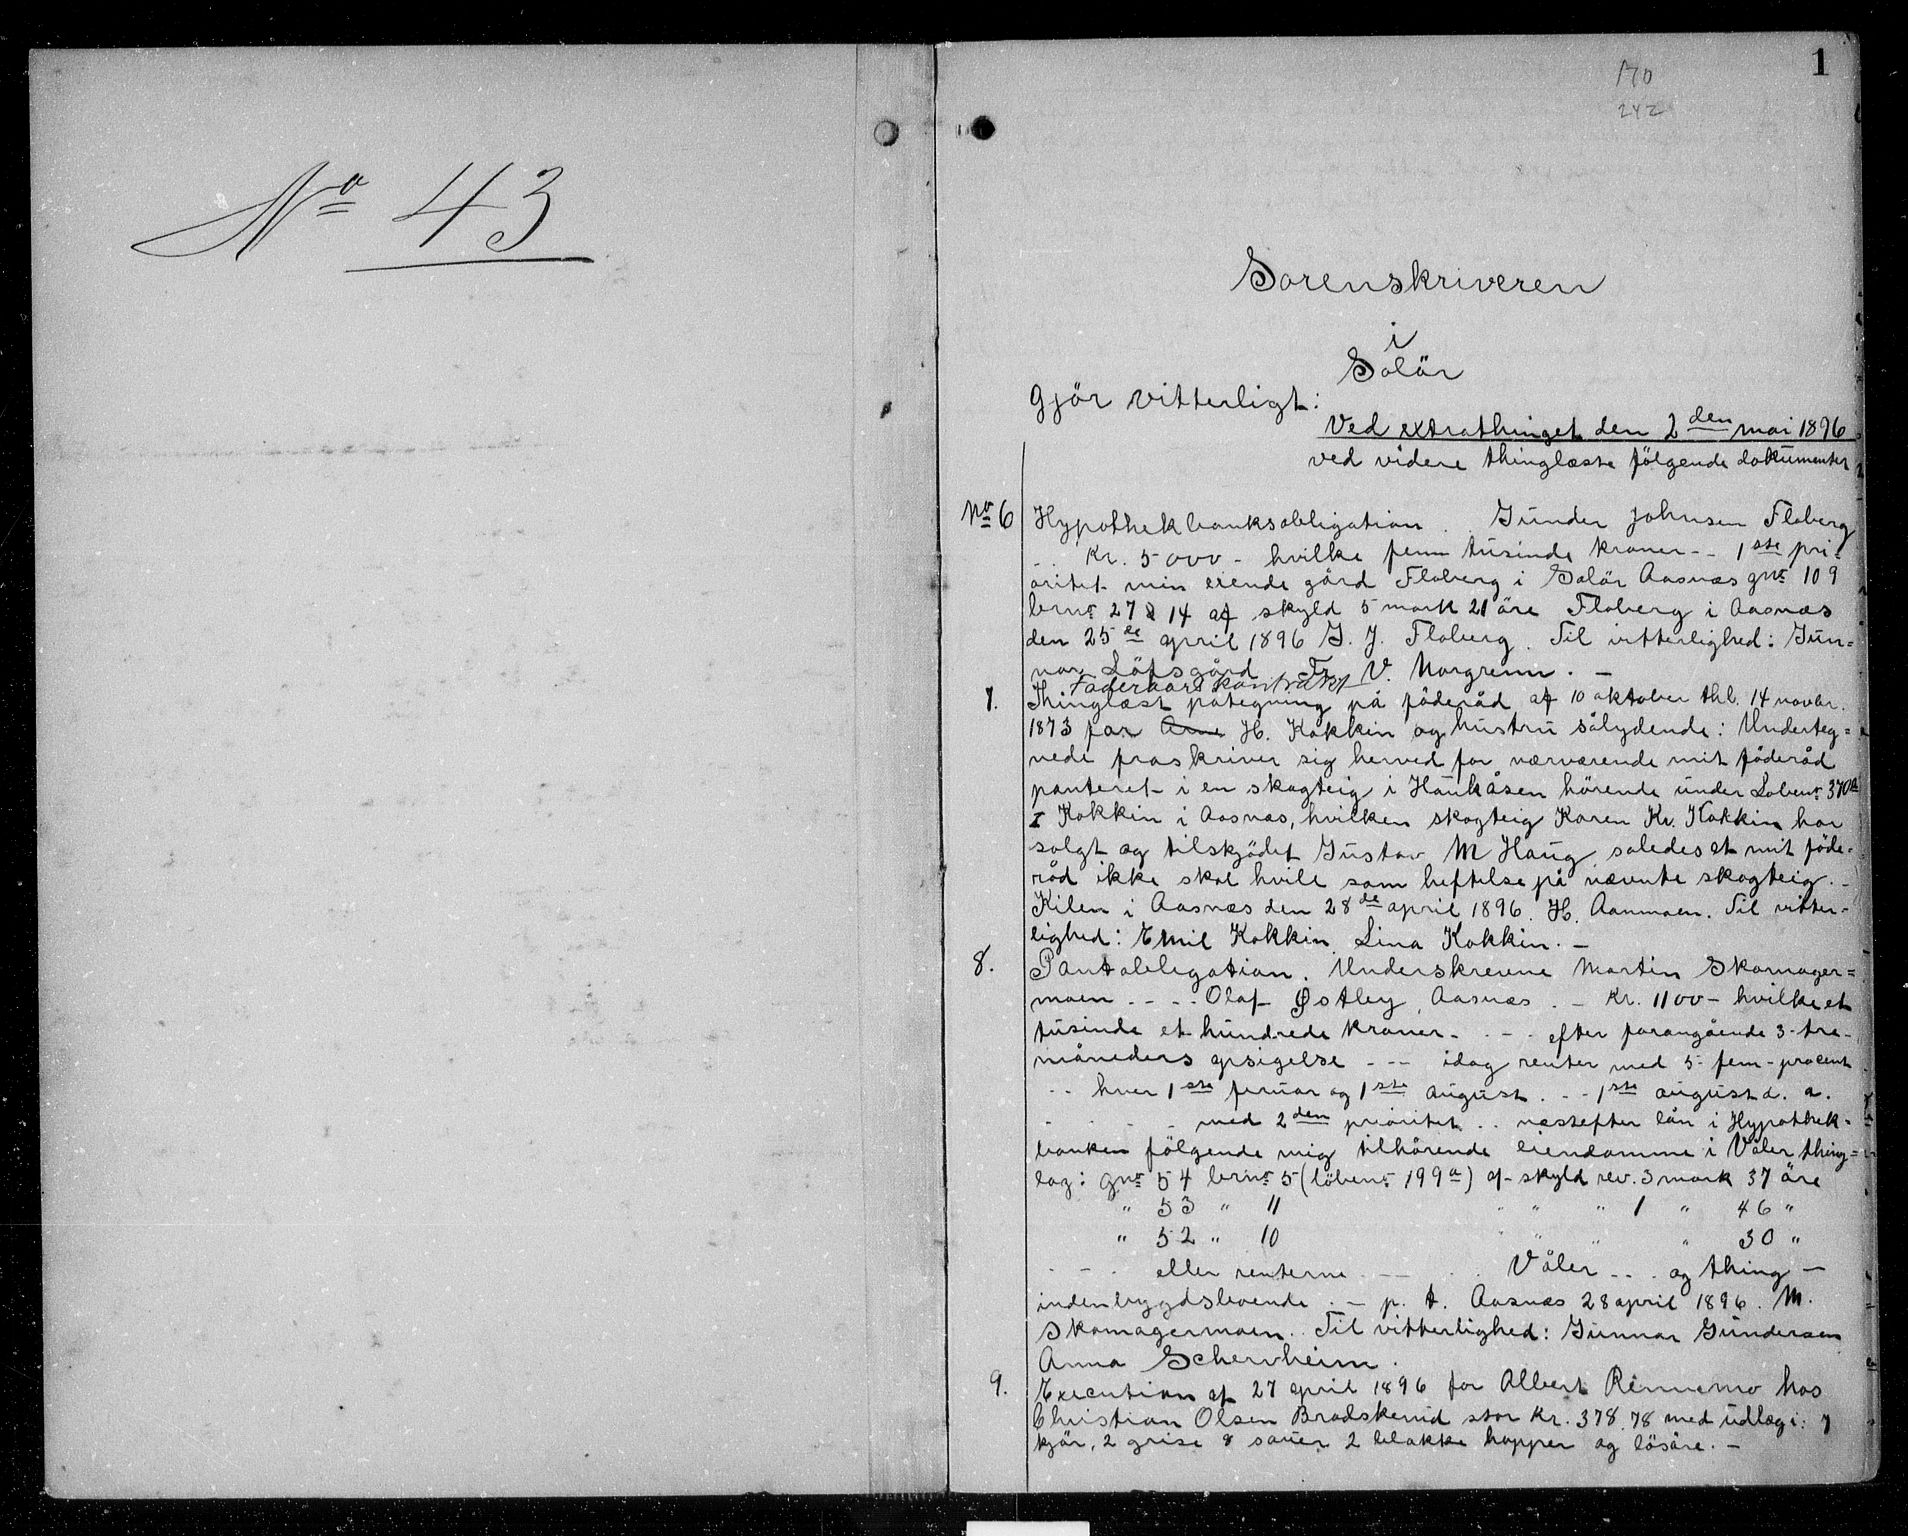 No 43
1
170
242
Sorenskriveren
i
Solör
Gjör vitterligt:
Ved extrathinget den 2den mai 1896
ved videre thinglæste fölgende dokumenter
No 6 Hypothekbanksobligation. Gunder Johnsen Floberg
.. Kr. 5000 - hvilke fem tusinde kroner - - 1ste pri-
oritet min eiende gård Floberg i Solör Aasnæs gno 109
brno 27 & 14 af skyld 5 mark 21 öre Floberg i Aasnæs
den 25de april 1896 G. J. Floberg. Til vitterlighed: Gun-
nar Löfsgård Fr. V. Norgrenn. -
Föderaadskontrakt
7. Thinglæst påtegning på föderåd af 10 oktober thl. 14 novbr.
1873 for Arne H. Kokkin og hustru sålydende: Underteg-
nede fraskriver sig herved for nærværende mit föderåd
panteret i en skogteig i Haukåsen hörende under Lobeno 370a
I Kokkin i Aasnæs, hvilken skogteig Karen Kr. Kokkin har
solgt og tilskjödet Gustav M Haug, saledes at mit föde-
råd ikke skal hvile som heftelse på nævnte skogteig. -
Kilen i Aasnæs den 28de april 1896. H. Aanmoen. Til vitter-
lighed: Emil Kokkin Lina Kokkin. -
8. Pantobligation. Underskrevne Martin Skomager-
moen - - - - Olaf Østby, Aasnæs. - Kr. 1100 - hvilke et
tusinde et hundrede kroner - - - - efter forangående 3-tre-
måneders opsigelse - - - idag renter med 5- fem - procent
- - hver 1ste feruar og 1ste august. - - 1ste august d. a.
- - - - med 2den prioritet . . næstefter lån i Hypothek-
banken fölgende mig tilhörende eiendomme i Våler thing-
lag: gno 54 brno 5 (löbeno 199a) af skyld rev. 3 mark 37 öre
" 53 " 11 " " " 1 " 46 "
" 52 " 10 " " " " 30 "
- - - eller renterne - - - . . Våler . . . og thing -
indenbygdsboende. - p. t. Aasnæs 28 april 1896. M.
Skomagermoen. Til vitterlighed: Gunnar Gundersen
Anna Schervheim.
9. Execution af 27 april 1896 for Albert Rennemo hos
Christian Olsen Brodskerud stor Kr. 378.78 med udlæg i: 7
kjör, 2 grise 8 sauer 2 blakke hopper og lösöre. -